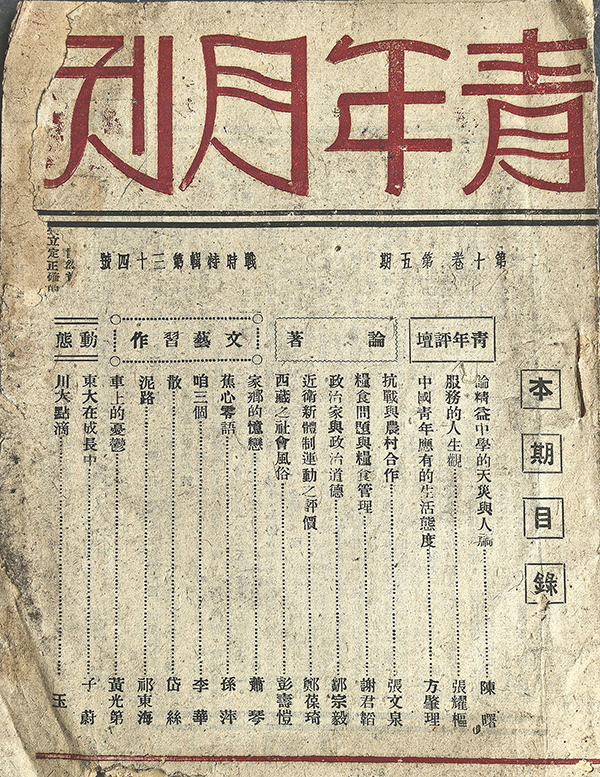 青年月刊
第十卷 第五期
戰時特輯第三十四號
立定正確的
本期目錄
青年評壇
論精益中學的天災與人禍 陳曙
服務的人生觀 張耀樞
中國青年應有的生活態度 方肇理
論著
抗戰與農村合作 張文泉
糧食問題與糧食管理 謝君韜
政治家與政治道德 鄒宗毅
近衛新體制運動之評價 鄭葆琦
西藏之社會風俗 彭壽愷
文藝習作
家鄉的憶戀 蕭琴
蕉心零語 孫萍
咱三個 李華
散 岱絲
泥路 祁東海
車上的憂鬱 黃光弟
動態
東大在成長中 子蔚
川大點滴 玉